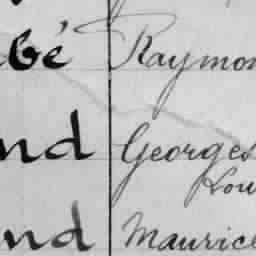 bé Raymon
nd Georges
Lou
nd Maurice